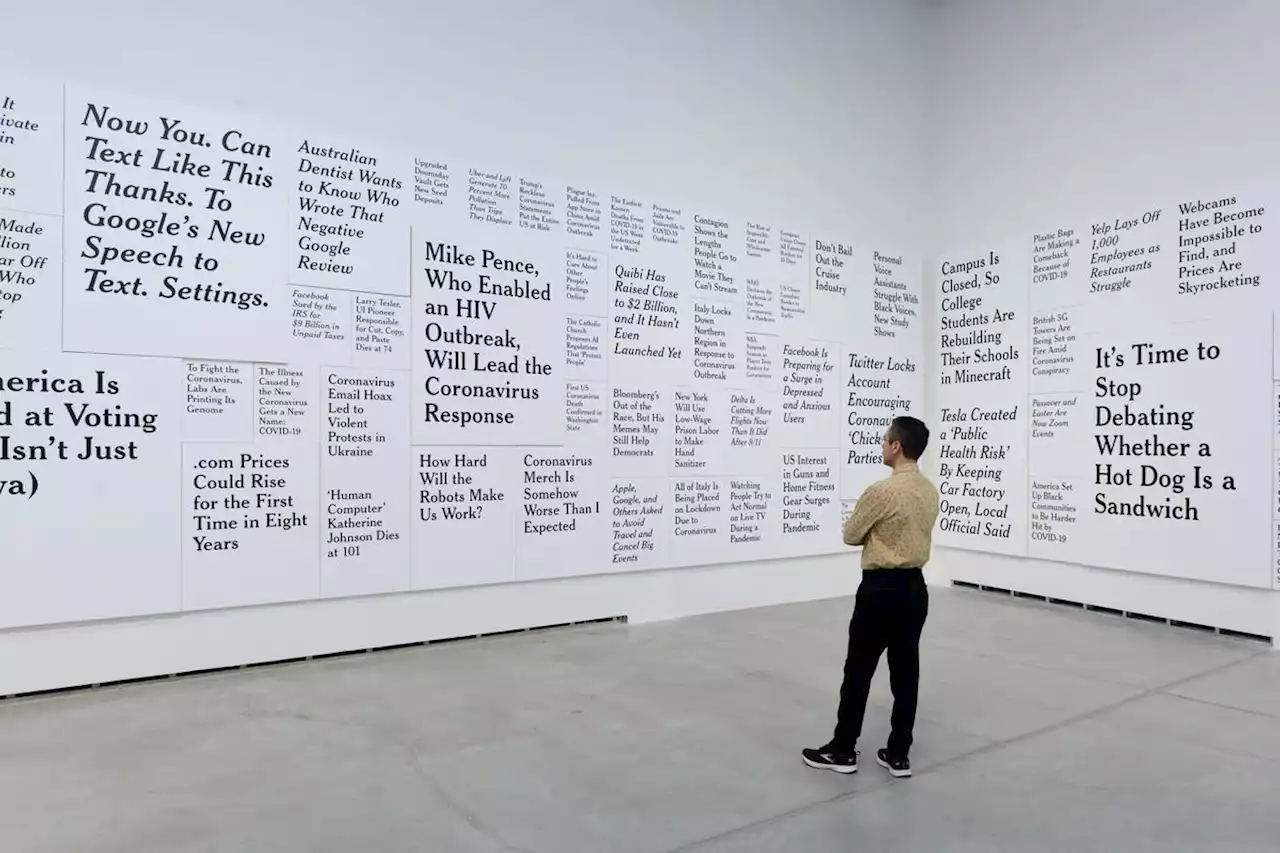 It
ivate
in
to
ers
Made
llion
ar Off
Who
top
g
Now You. Can
Text Like This
Thanks. To
Google's New
Speech to
Text. Settings.
Australian
Dentist Wants
to Know Who
Wrote That
Negative
Google
Review
Facebook
Sued by the
IRS for
$9 Billion in
Unpaid Taxes
Larry Tesler,
UI Pioneer
Responsible
for Cut, Copy,
and Paste
Dies at 74
Upgraded
Doomsday
Vault Gets
New Seed
Deposits
Uber and Lyft
Generate 70
Percent More
Pollution
Than Trips
They Displace
Trump's
Reckless
Coronavirus
Statements
Put the Entire
US at Risk
Plague Inc.
Pulled From
App Store in
China Amid
Coronavirus
Outbreak
The Earliest
Known
Deaths From
COVID-19 in
the US Went
Undetected
for a Week
Prisons and
Jails Are
Vulnerable to
COVID-19
Outbreaks
Contagion
Shows the
Lengths
People Go to
Watch a
Movie They
Can't Stream
Don't Bail
Out the
Cruise
Industry
Personal
Voice
Assistants
Struggle With
Black Voices,
New Study
Shows
Mike Pence,
Who Enabled
an HIV
Outbreak,
Will Lead the
Coronavirus
Response
It's Hard to
Care About
Other
People's
Feelings
Online
The Catholic
Church
Proposes AI
Regulations
That 'Protect
People'
First US
Coronavirus
Death
Confirmed in
Washington
State
Quibi Has
Raised Close
to $2 Billion,
and It Hasn't
Even
Launched Yet
Italy Locks
Down
Northern
Region in
Response to
Coronavirus
Outbreak
Facebook Is
Preparing for
a Surge in
Depressed
and Anxious
Users
Twitter Locks
Account
Encouraging
Corona
'Chick
Parties
merica Is
d at Voting
Isn't Just
va)
To Fight the
Coronavirus,
Labs Are
Printing Its
Genome
The Illness
Caused by
the New
Coronavirus
Gets a Name:
COVID-19
Coronavirus
Email Hoax
Led to
Violent
Protests in
Ukraine
.com Prices
Could Rise
for the First
Time in Eight
Years
'Human
Computer'
Katherine
Johnson Dies
at 101
How Hard
Will the
Robots Make
Us Work?
Coronavirus
Merch Is
Somehow
Worse Than I
Expected
Bloomberg's
Out of the
Race, But His
Memes May
Still Help
Democrats
New York
Will Use
Low-Wage
Prison Labor
to Make
Hand
Sanitizer
Delta Is
Cutting More
Flights Now
Than It Did
After 9/11
Apple,
Google, and
Others Asked
to Avoid
Travel and
Cancel Big
Events
All of Italy Is
Being Placed
on Lockdown
Due to
Coronavirus
Watching
People Try to
Act Normal
on Live TV
During a
Pandemic
US Interest
in Guns and
Home Fitness
Gear Surges
During
Pandemic
Campus Is
Closed, So
College
Students Are
Rebuilding
Their Schools
in Minecraft
Tesla Created
a 'Public
Health Risk'
By Keeping
Car Factory
Open, Local
Official Said
Plastic Bags
Are Making a
Comeback
Because of
COVID-19
British 5G
Towers Are
Being Set on
Fire Amid
Coronavirus
Conspiracy
Passover and
Easter Are
Now Zoom
Events
America Set
Up Black
Communities
to Be Harder
Hit by
COVID-19
Yelp Lays Off
1,000
Employees as
Restaurants
Struggle
Webcams
Have Become
Impossible to
Find, and
Prices Are
Skyrocketing
It's Time to
Stop
Debating
Whether a
Hot Dog Is a
Sandwich